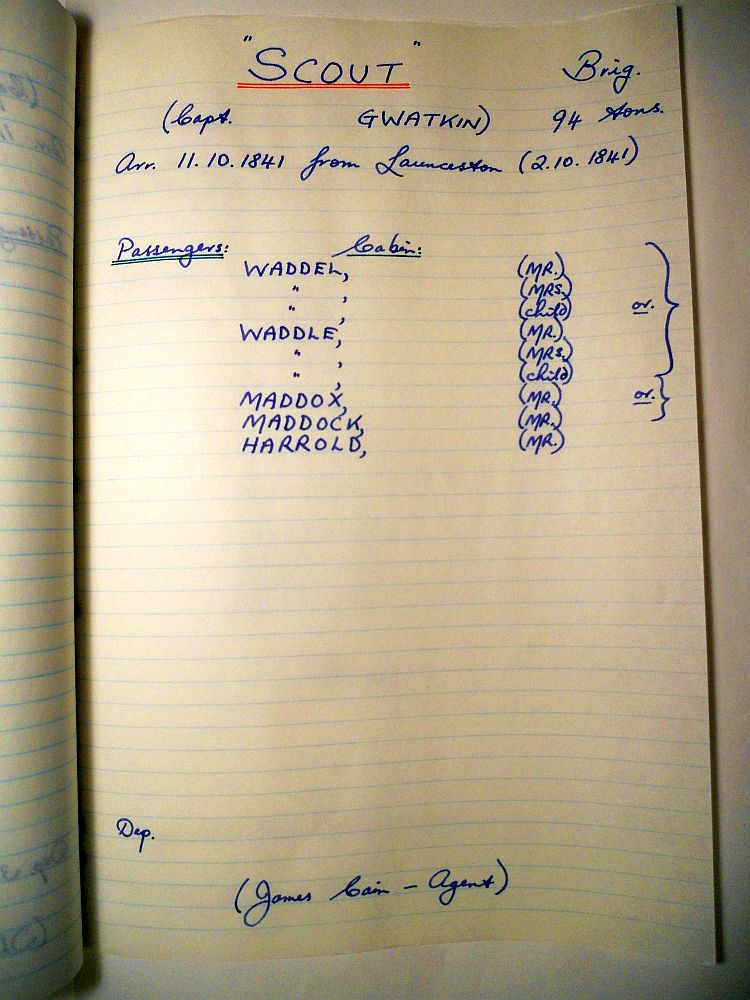 "SCOUT" Brig.
(Capt. GWATKIN) 94 tons.
Arr. 11.10.1841 from Launceston (2.10.1841)
Passengers: Cabin:
WADDEL, (MR.)
" , (MRS.)
" , (child) or.
WADDLE, (MR.)
" , (MRS.)
" , (child)
MADDOX, (MR.) or.
MADDOCK, (MR.)
HARROLD, (MR.)
Dep.
(James Cain - Agent)